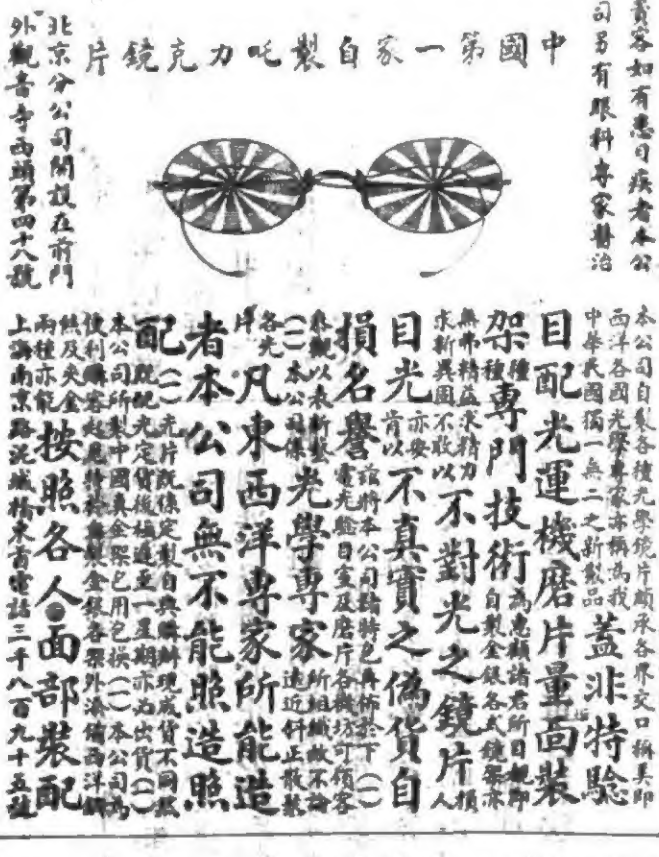 貴客如有患目疾者本公
司另有眼科專家醫治
中國第一家自製吒力克鏡片
北京分公司開設在前門
外觀音寺西頭第四十八號
本公司自製各種光學鏡片頗承各界交口稱美即
西洋各國光學專家亦稱為我
中華民國獨一無二之新製品
蓋非特驗
目配光運機磨片量面裝
架種種專門技術
為惠顧諸君所目覩即
自製金銀各式鏡架亦
無弗精益求精力
求新異固不敢以
不對光之鏡片損人
目光亦安肯以不真實之偽貨自
損名譽
茲將本公司諸特色再佈於下(一)
電光驗目室及磨片各機坊可領客
參觀以表新藝
(一)本公司係
光學專家
所組織故不論
遠近斜正散聚
各光
片凡東西洋專家所能造
者本公司無不能照造照
配
(一)光片既係定製自與購辦現成貨不同然
既配光定貨後極遲至一星期亦為出貨(一)
本公司所製中國真金架包用包換(一)本公司為
便利購客起見特於自製金銀各架外添備西洋鋼
絲及夾金
兩種亦能
按照各人面部裝配
上海南京路泥城橋東首電話三千八百九十五號